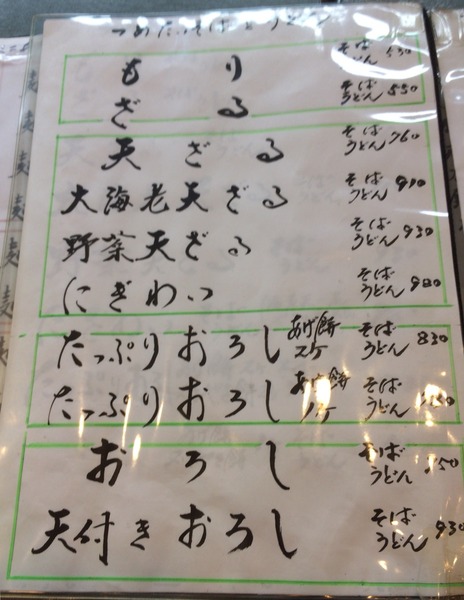 つめたいそばとうどん
もり そば うどん 530
ざる そば うどん 550
天ざる そば うどん 760
大海老天ざる そば うどん
野菜天ざる そば うどん 930
にぎわい そば うどん
たっぷりおろし あげ餅 そば うどん 830
たっぷりおろし あげ餅 そば うどん
おろし そば うどん
天付きおろし そば うどん 930